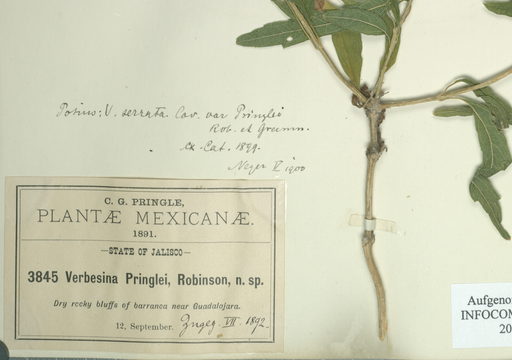 Potius: V. serrata Cav. var Pringlei
Rob. et Greenm.
Ex. Cat. 1899.
Neger V 1900
C. G. PRINGLE,
PLANTÆ MEXICANÆ.
1891.
—STATE OF JALISCO—
3845 Verbesina Pringlei, Robinson, n. sp.
Dry rocky bluffs of barranca near Guadalajara.
12, September. Zugeg. VII. 1892.
Aufgenom
INFOCOM
20